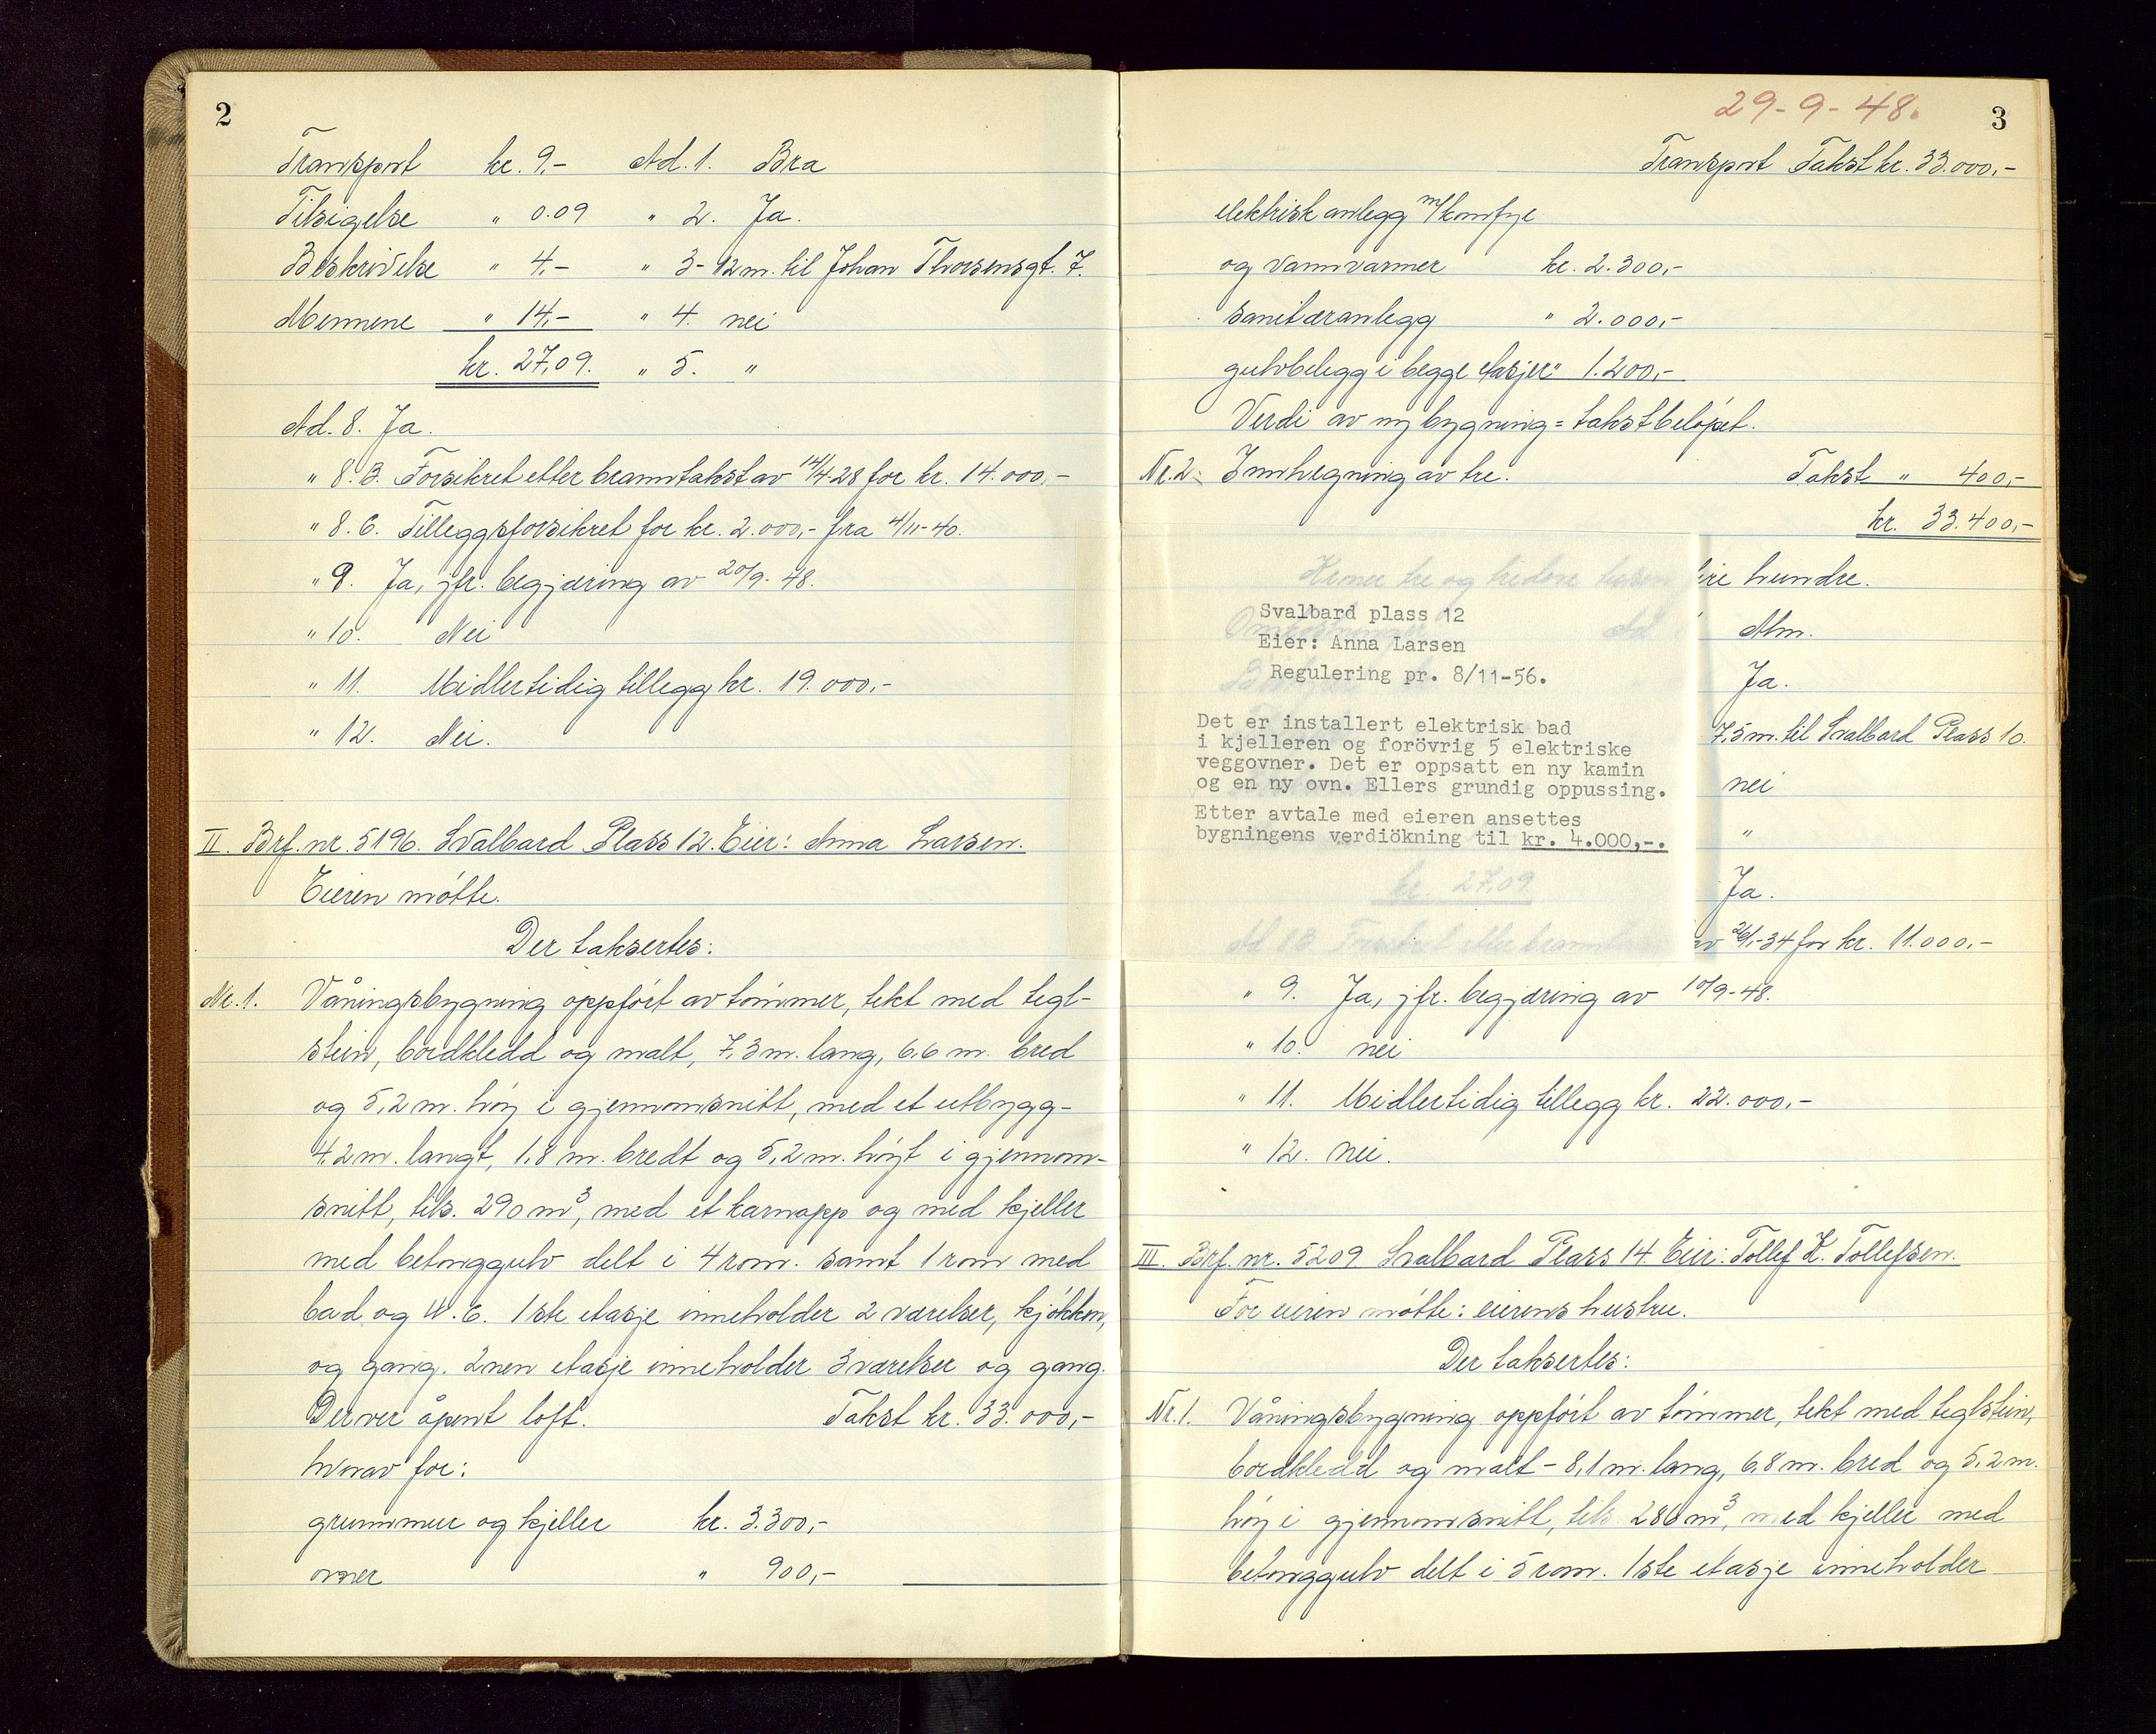 2
Transport kr. 9,- Ad. 1. Bra
Tilsigelse " 0.09 " 2. Ja.
Beskrivelse " 4,- " 3 - 12 m. til Johan Thorsensgt. 7.
Mennene " 14,- " 4. nei
kr. 27,09. " 5. "
Ad. 8. Ja.
" 8.B. Forsikret etter branntakst av 14/4-28 for kr. 14.000,-
" 8.C. Tilleggsforsikret for kr. 2.000,- fra 4/11-40.
" 9. Ja, jfr. begjæring av 20/9-48.
" 10. Nei
" 11. Midlertidig tillegg kr. 19.000,-
" 12. Nei.
II. Brf. nr. 5196. Svalbard Plass 12. Eier: Anna Larsen.
Eieren møtte.
Der taksertes:
Nr. 1. Våningsbygning oppført av tømmer, tekt med tegl-
stein, bordkledd og malt, 7,3 m. lang, 6,6 m. bred
og 5,2 m. høy i gjennomsnitt, med et utbygg-
4,2 m. langt, 1,8 m. bredt og 5,2 m. høyt i gjennom-
snitt, tils. 290 m³, med et karnapp og med kjeller
med betonggulv delt i 4 rom. samt 1 rom med
bad og W.C. 1ste etasje inneholder 2 værelser, kjøkken,
og gang. 2nen etasje inneholder 3 værelser og gang.
Derver åpent loft. Takst kr. 33.000,-
hvorav for:
grunnmur og kjeller kr. 3.300,-
ovner " 900,-
29-9-48.
3
Transport Takst kr. 33.000,-
elektrisk anlegg m/komfyr
og vannvarmer kr. 2.300,-
sanitæranlegg " 2.000,-
gulvbelegg i begge etasjer " 1.200,-
Verdi av ny bygning = takstbeløpet.
Nr. 2. Innhegning av tre. Takst " 400,-
kr. 33.400,-
Kroner tre og tredve tusen fire hundre.
Svalbard plass 12
Eier: Anna Larsen
Regulering pr. 8/11-56.
Det er installert elektrisk bad
i kjelleren og forövrig 5 elektriske
veggovner. Det er oppsatt en ny kamin
og en ny ovn. Ellers grundig oppussing.
Etter avtale med eieren ansettes
bygningens verdiökning til kr. 4.000,-.
Alm.
Ja.
7,5 m. til Svalbard Plass 10.
nei
"
kr. 27,09
Ja.
av 26/1-34 for kr. 11.000,-
" 9. Ja, jfr. begjæring av 10/9-48.
" 10. nei
" 11. Midlertidig tillegg kr. 22.000,-
" 12. nei.
III. Brf. nr. 5209 Svalbard Plass 14. Eier: Tollef K. Tollefsen.
For eieren møtte: eierens hustru.
Der taksertes:
Nr. 1. Våningsbygning oppført av tømmer, tekt med teglstein,
bordkledd og malt - 8,1 m. lang, 6,8 m. bred og 5,2 m.
høy i gjennomsnitt, tils 286 m³, med kjeller med
betonggulv delt i 5 rom. 1ste etasje inneholder